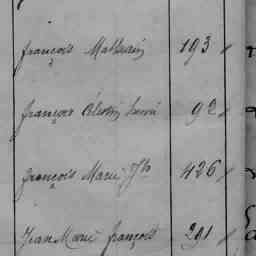 françois Mathurin 193
françois Célestin hervé 92
françois Marie 426
Jean Marie françois 291